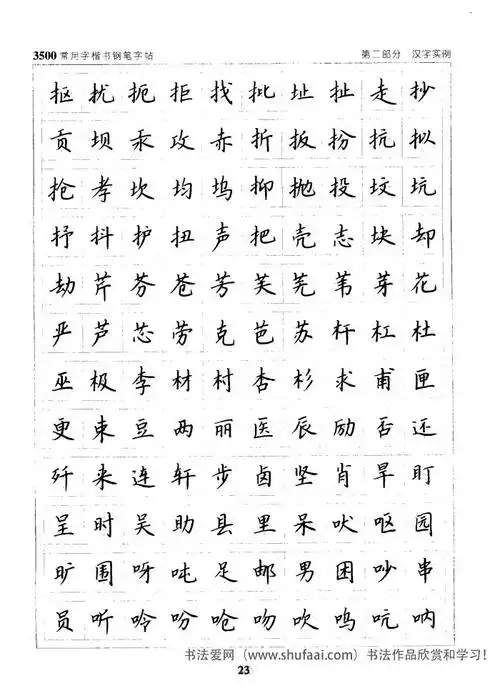 3500常用字楷书钢笔字帖 第二部分 汉字实例
抠扰扼拒找批址扯走抄
贡坝汞攻赤折扳扮抗拟
抢孝坎均坞抑抛投坟坑
抒抖护扭声把壳志块却
劫芹芬苍芳芙芜苇芽花
严芦芯劳克芭苏杆杠杜
巫极李材村杏杉求甫匣
更束豆两丽医辰励否还
歼来连轩步卤坚肖旱盯
呈时吴助县里呆吠呕园
旷围呀吨足邮男困吵串
员听吟吩呛吻吹呜吭呐
书法爱网（www.shufaai.com）书法作品欣赏和学习！
23